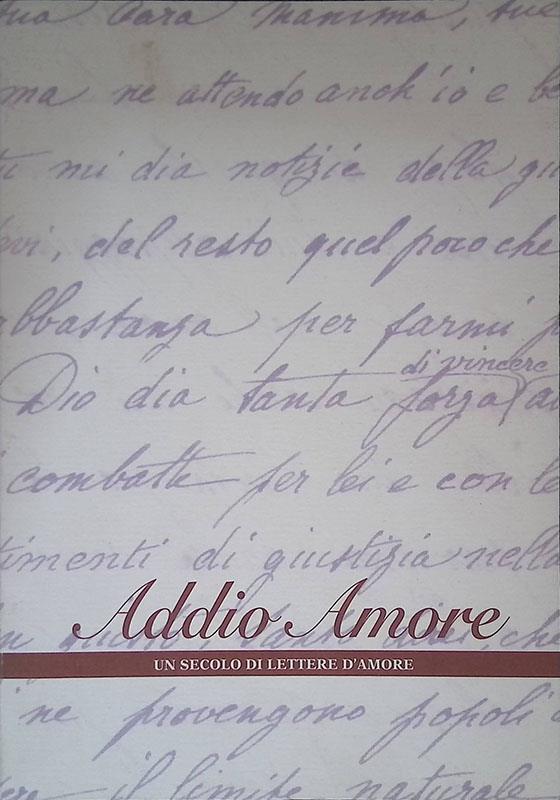 Cara Mamma, tue
ma ne attendo anch'io e be
mi dia notizie della gu
vi, del resto quel poco che
abbastanza per farmi p
di vincere
Dio dia tanta forza
combatte per lei e con le
timenti di giustizia nella
Addio Amore
in questi, che
UN SECOLO DI LETTERE D'AMORE
ne provengono popoli
il limite naturale